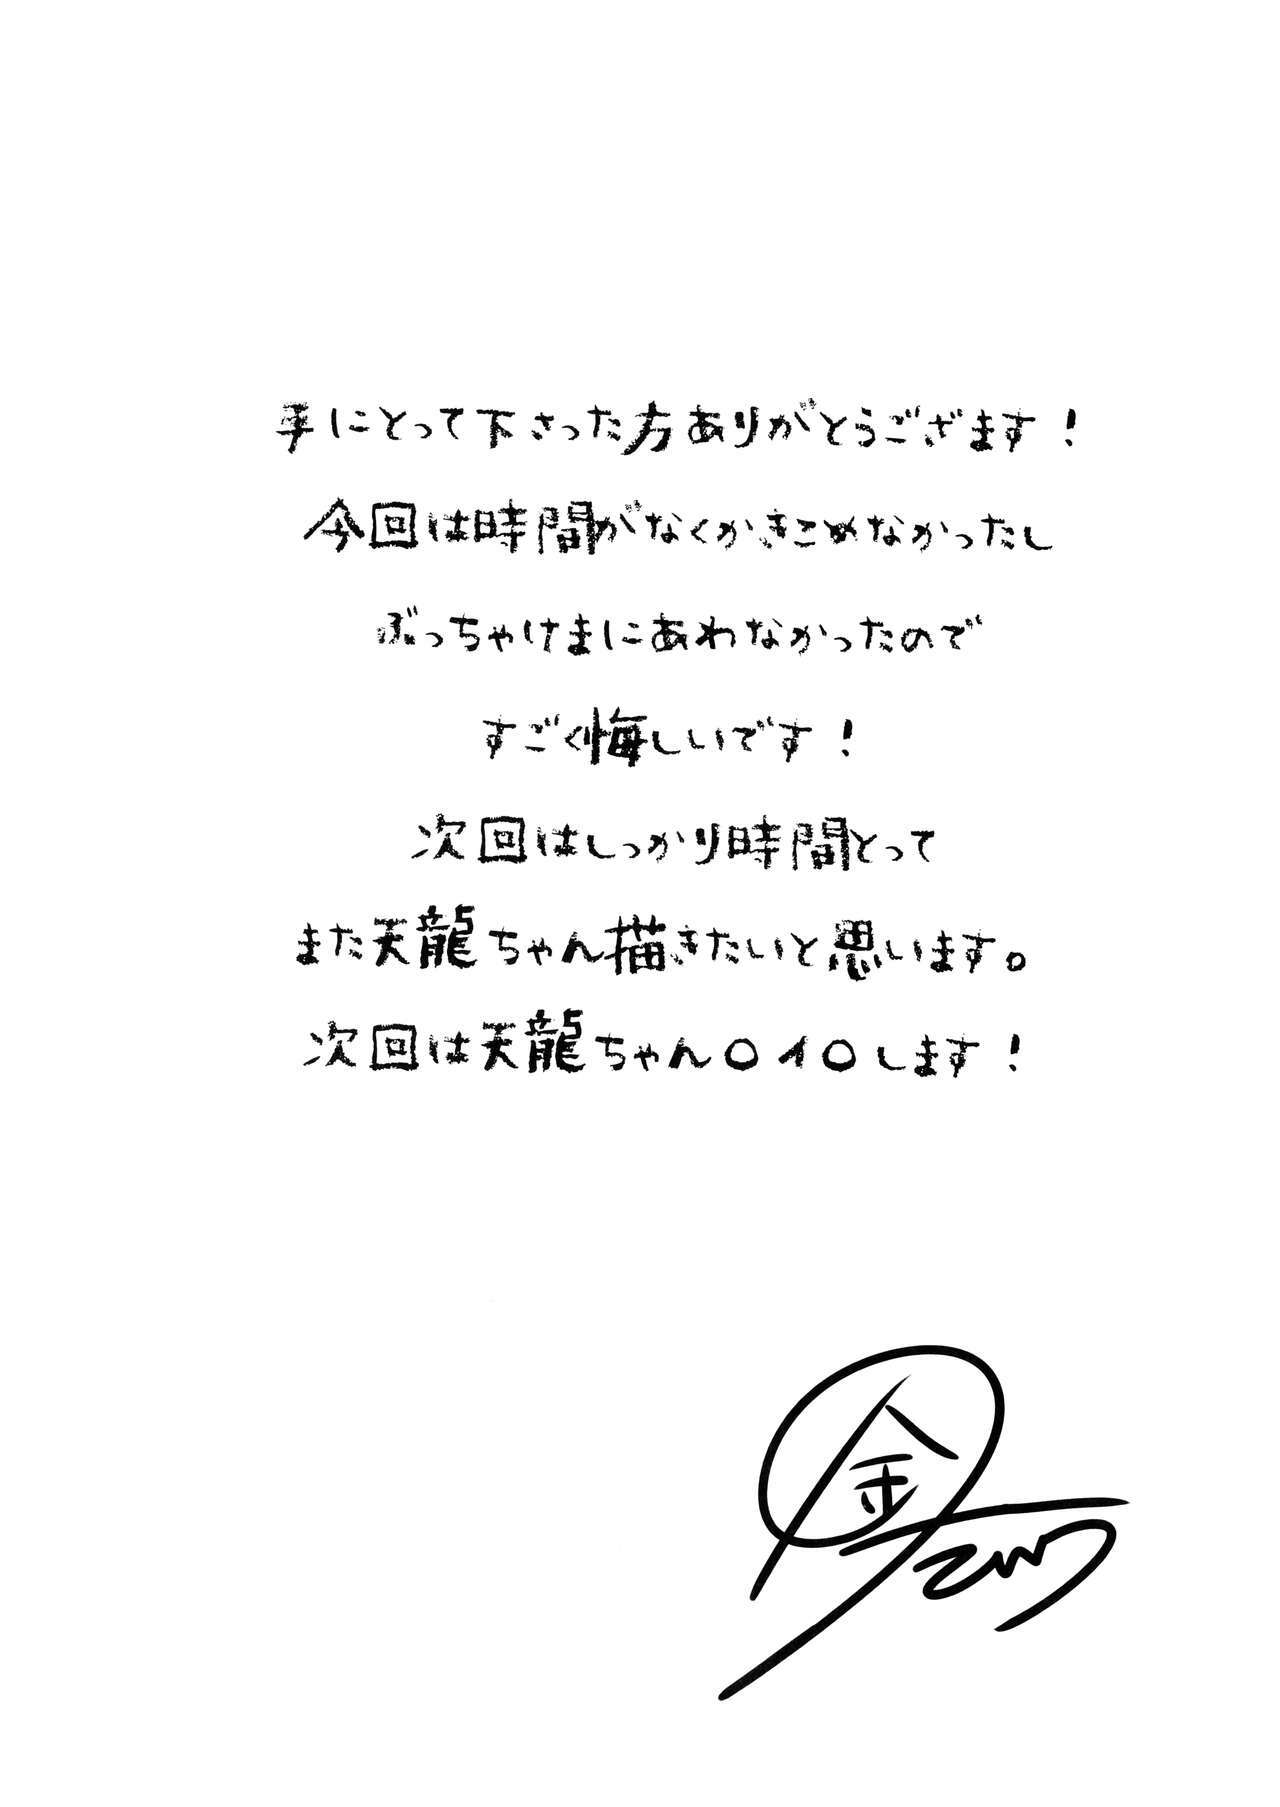 手にとって下さった方ありがとうござます!
今回は時間がなくかきこめなかったし
ぶっちゃけまにあわなかったので
すごく悔しいです!
次回はしっかり時間とって
また天龍ちゃん描きたいと思います。
次回は天龍ちゃん○イ○します!
金